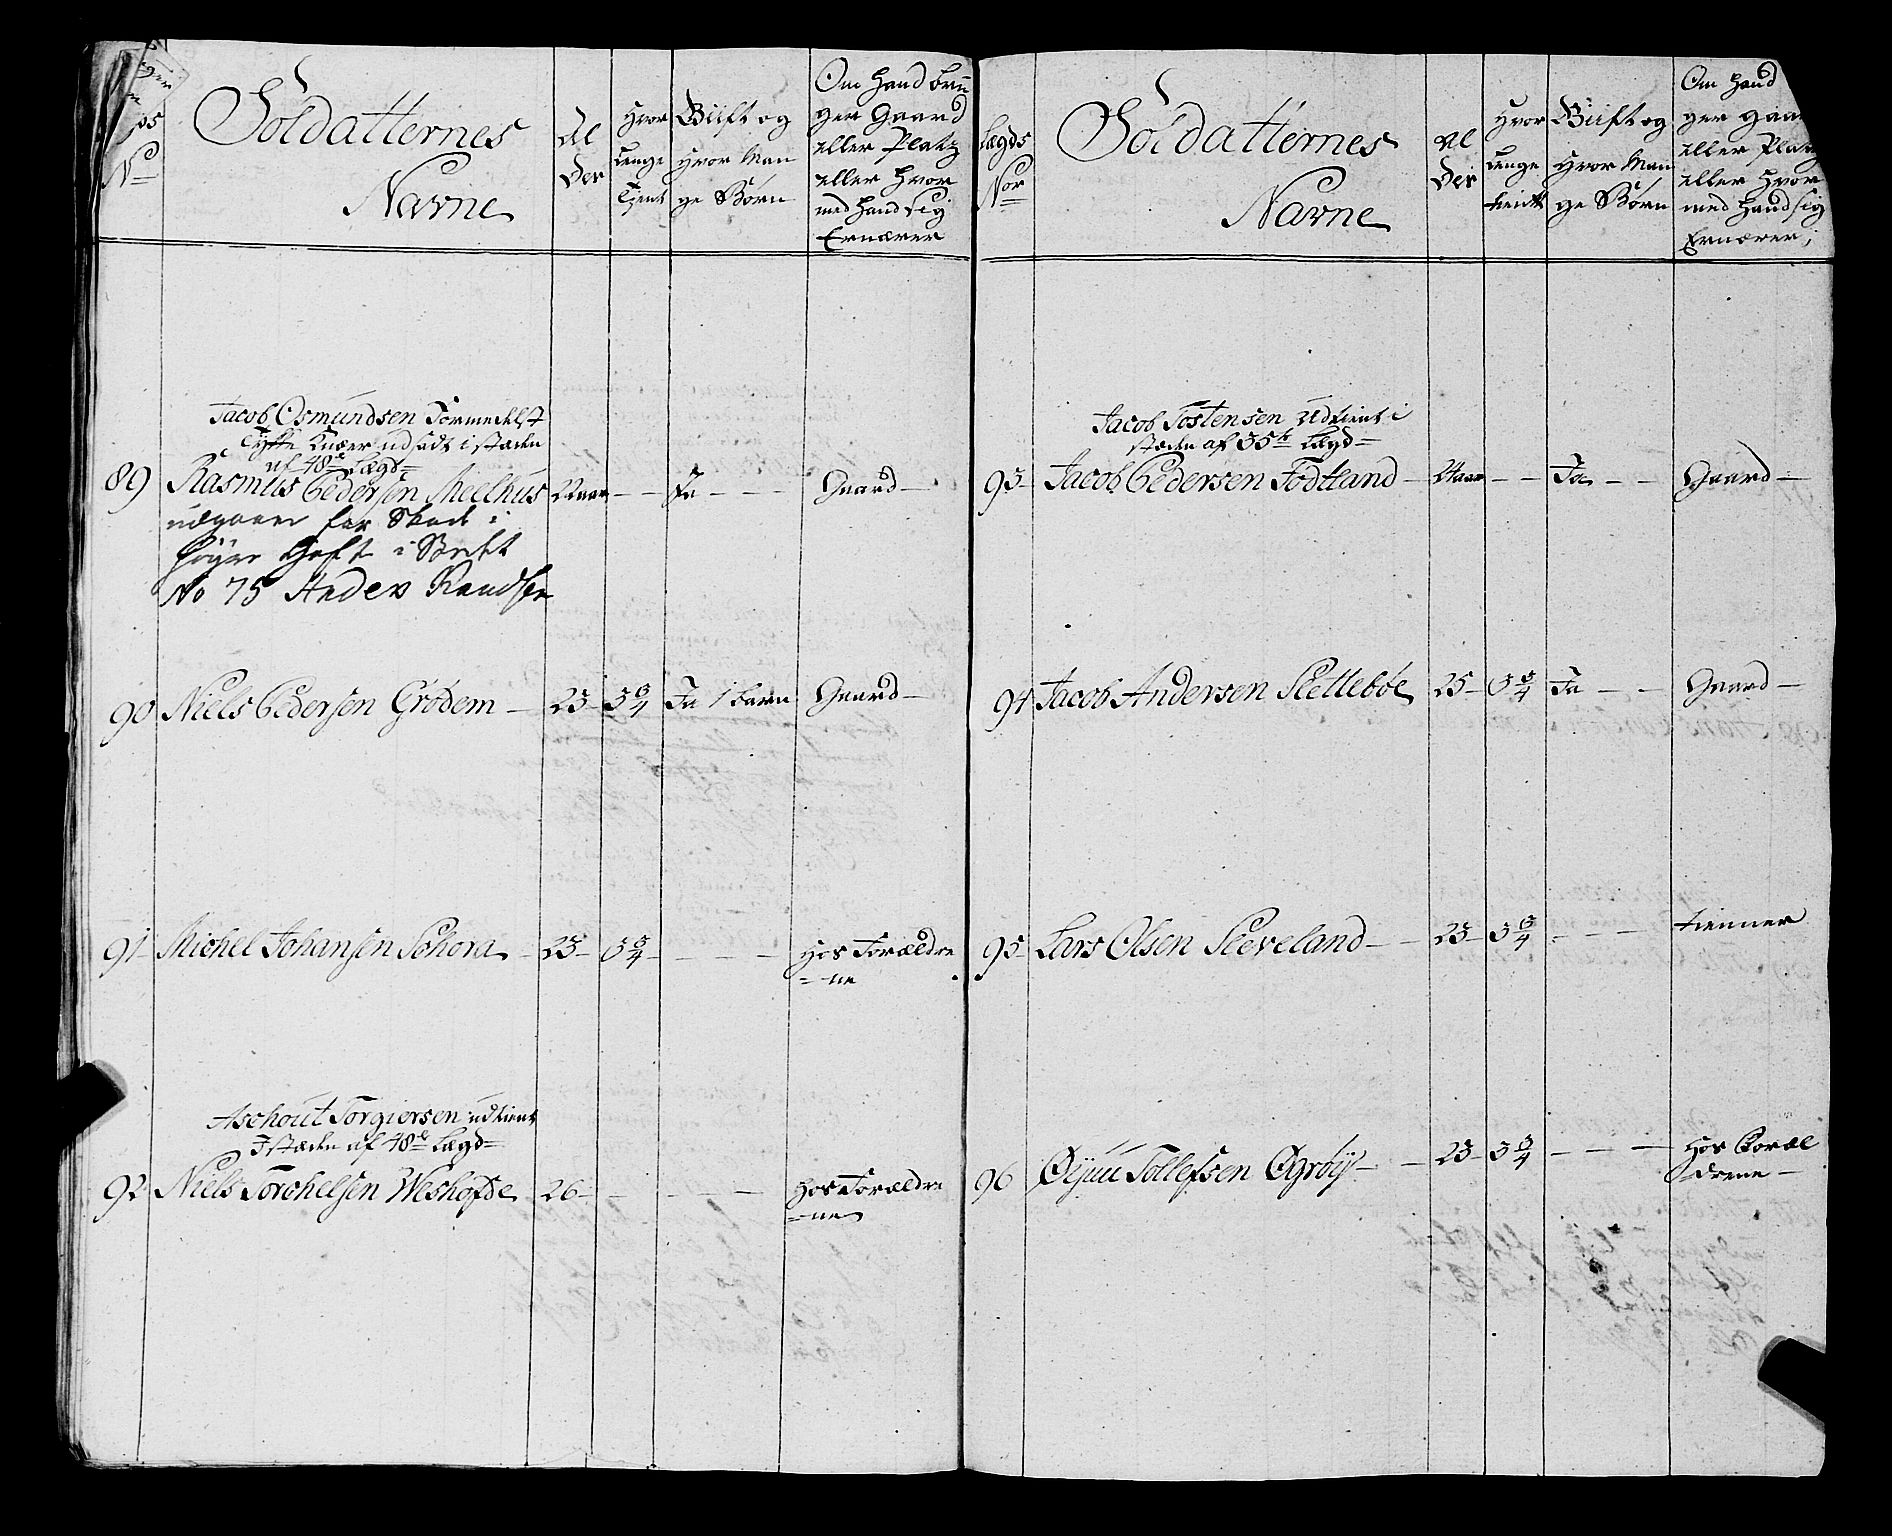 No
Soldatternes
Navne
Al
der
Hvor
Lenge
Tient
Giift og
Hvor Man
ge Børn
Om Hand bru
ger Gaard
eller Platz
eller Hvor
med Hand sig
Ernærer
Jacob Osmundsen Formedelst
Knæer udsadt i stæden
af 48de Lægd
89 Rasmus Pedersen Meelhus 22 aar — — Ja — — — Gaard —
udgaaer for Skade i
høyre i
No 75 Anders Knudsen
90 Niels Pedersen Grødem — 23 — 3 3/4 Ja 1 barn Gaard —
91 Michel Johansen Schora — 23 — 3 3/4 — — — — Hos Forældre
= ne
Aschout Torgiersen udtient
I stæden af 48de Lægd =
92 Niels Torchelsen Weshofde 26 — — — — — Hos Forældre
= ne
Lægds
Nor
Soldatternes
Navne
Al
der
Hvor
Lenge
tient
Giift og
Hvor Man
ge Børn
Om Hand
ger Gaar
eller Platz
eller Hvor
med Hand sig
Ernærer;
Jacob Tostensen Udtient i
stæden af 35te Lægd =
93 Jacob Pedersen Fodtland — 24 aar — — Ja — — Gaard —
94 Jacob Andersen Slettebøe 25 — 3 3/4 Ja — — Gaard —
95 Lars Olsen Sleveland — — 23 — 3 3/4 — — — tienner
96 Øyuu Tollefsen Øgrøy — — 23 — 3 3/4 — — — Hos Foræl
= drene —